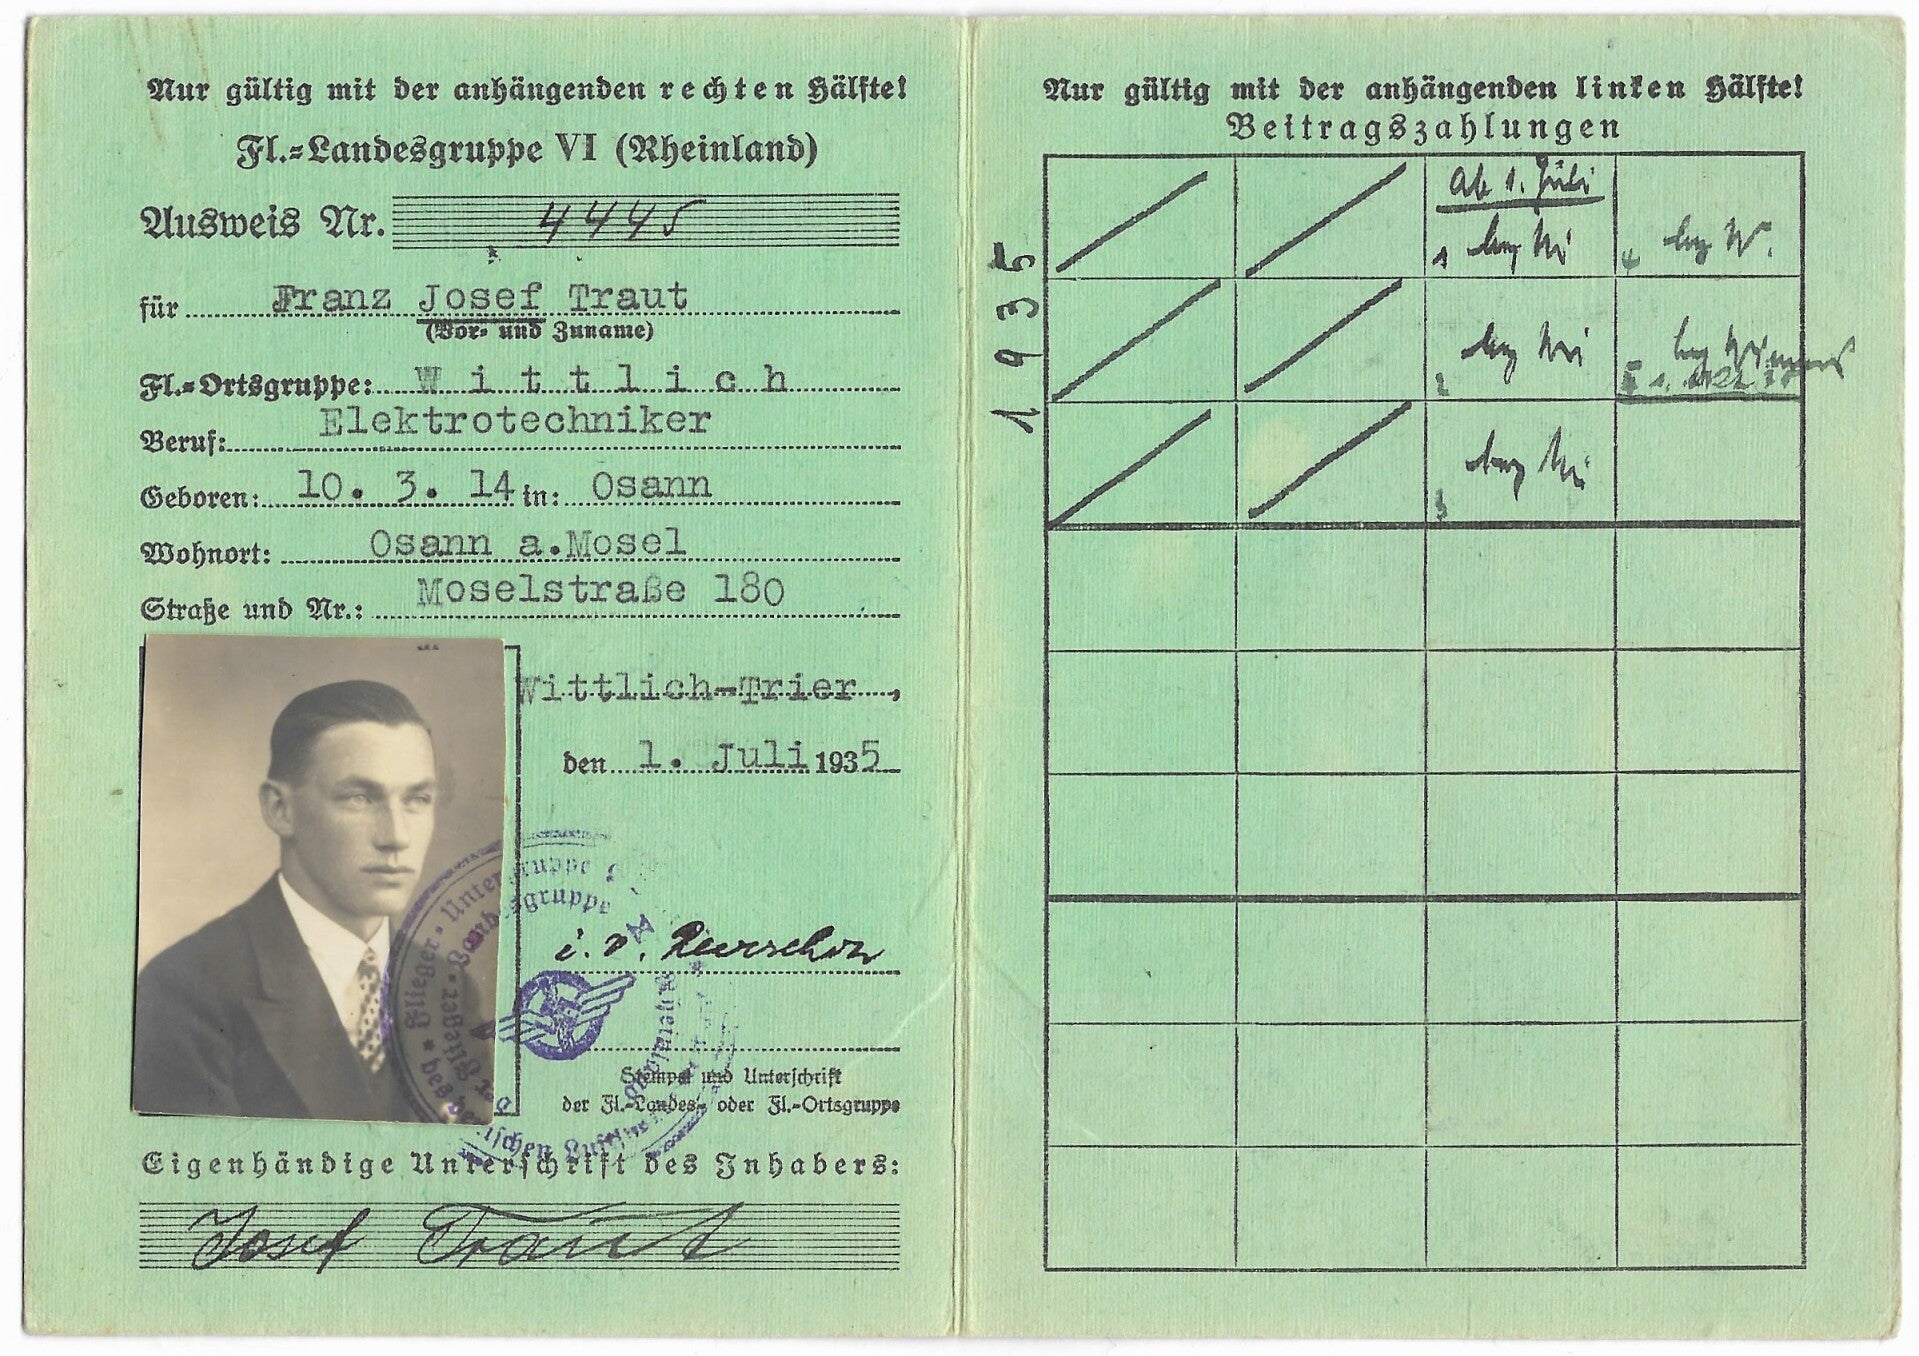 Nur gültig mit der anhängenden rechten Hälfte!
Fl.=Landesgruppe VI (Rheinland)
Ausweis Nr. 4445
für Franz Josef Traut
(Vor- und Zuname)
Fl.=Ortsgruppe: Wittlich
Beruf: Elektrotechniker
Geboren: 10. 3. 14 in: Osann
Wohnort: Osann a.Mosel
Straße und Nr.: Moselstraße 180
Wittlich-Trier,
den 1. Juli 1935
i. V.
Stempel und Unterschrift
der Fl.=Landes- oder Fl.=Ortsgruppe
Flieger-Untergruppe
der Flieger-Landesgruppe
des Deutschen
Eigenhändige Unterschrift des Inhabers:
Josef Traut
Nur gültig mit der anhängenden linken Hälfte!
Beitragszahlungen
1935
Ab 1. Juli
1
4
2
3